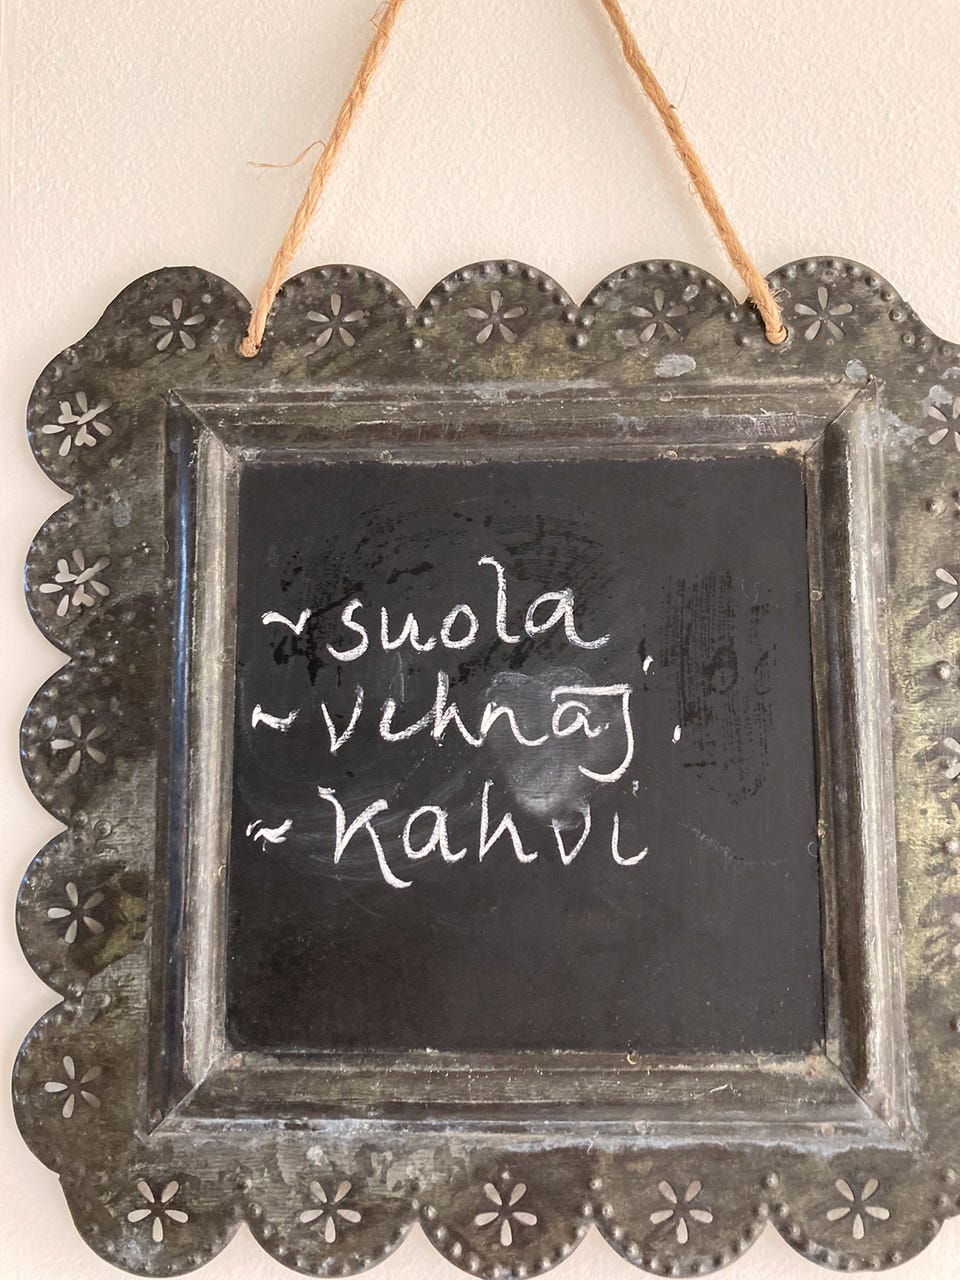 ~ suola
~ vehnäj.
~ kahvi